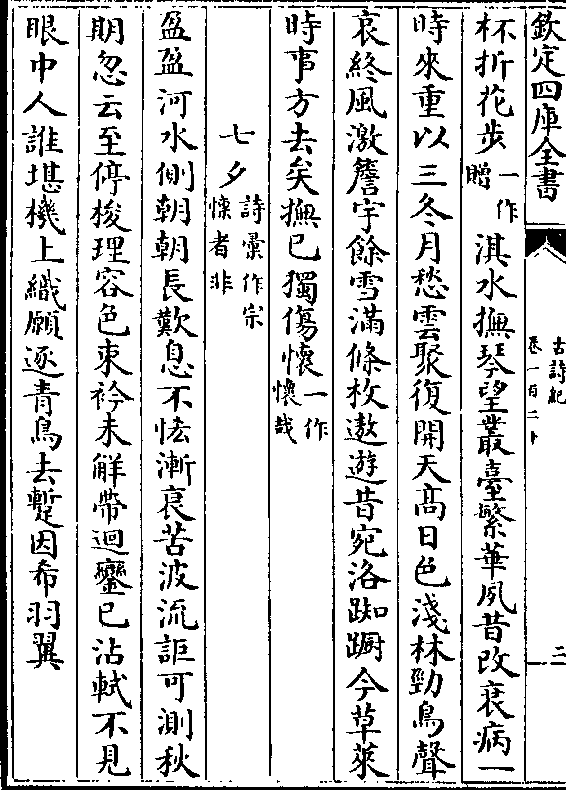 欽定四庫全書
古詩紀
卷一百二十
二
杯折花步一作贈淇水撫琴望叢臺繁華夙昔改衰病一
時來重以三冬月愁雲聚復開天髙日色淺林勁鳥聲
哀終風激簷宇餘雪滿條枚遨遊昔宛洛踟蹰今草萊
時事方去矣撫已獨傷懐一作懐哉
七夕詩彚作宗懍者非
盈盈河水側朝朝長歎息不恡漸衰苦波流詎可測秋
期忽云至停梭理容色束衿未解帶迴鑾已沾軾不見
眼中人誰堪機上織願逐青鳥去暫因希羽翼